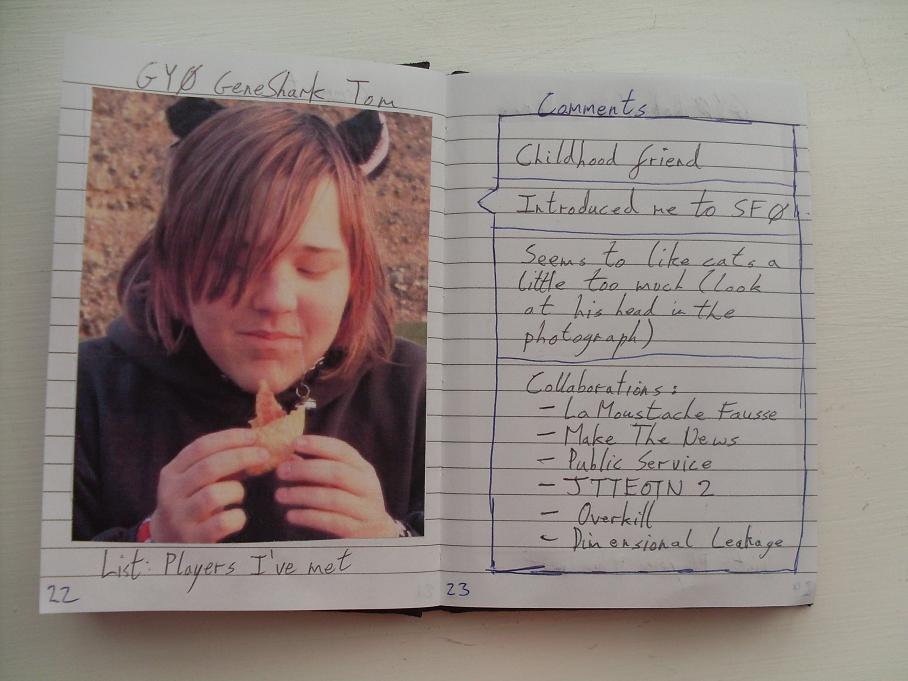 GYØ GeneShark Tom
List: Players I've met
22
Comments
Childhood friend
Introduced me to SFØ
Seems to like cats a
little too much (look
at his head in the
photograph)
Collaborations:
- La Moustache Fausse
- Make The News
- Public Service
- JTTEOTN 2
- Overkill
- Dimensional Leakage
23